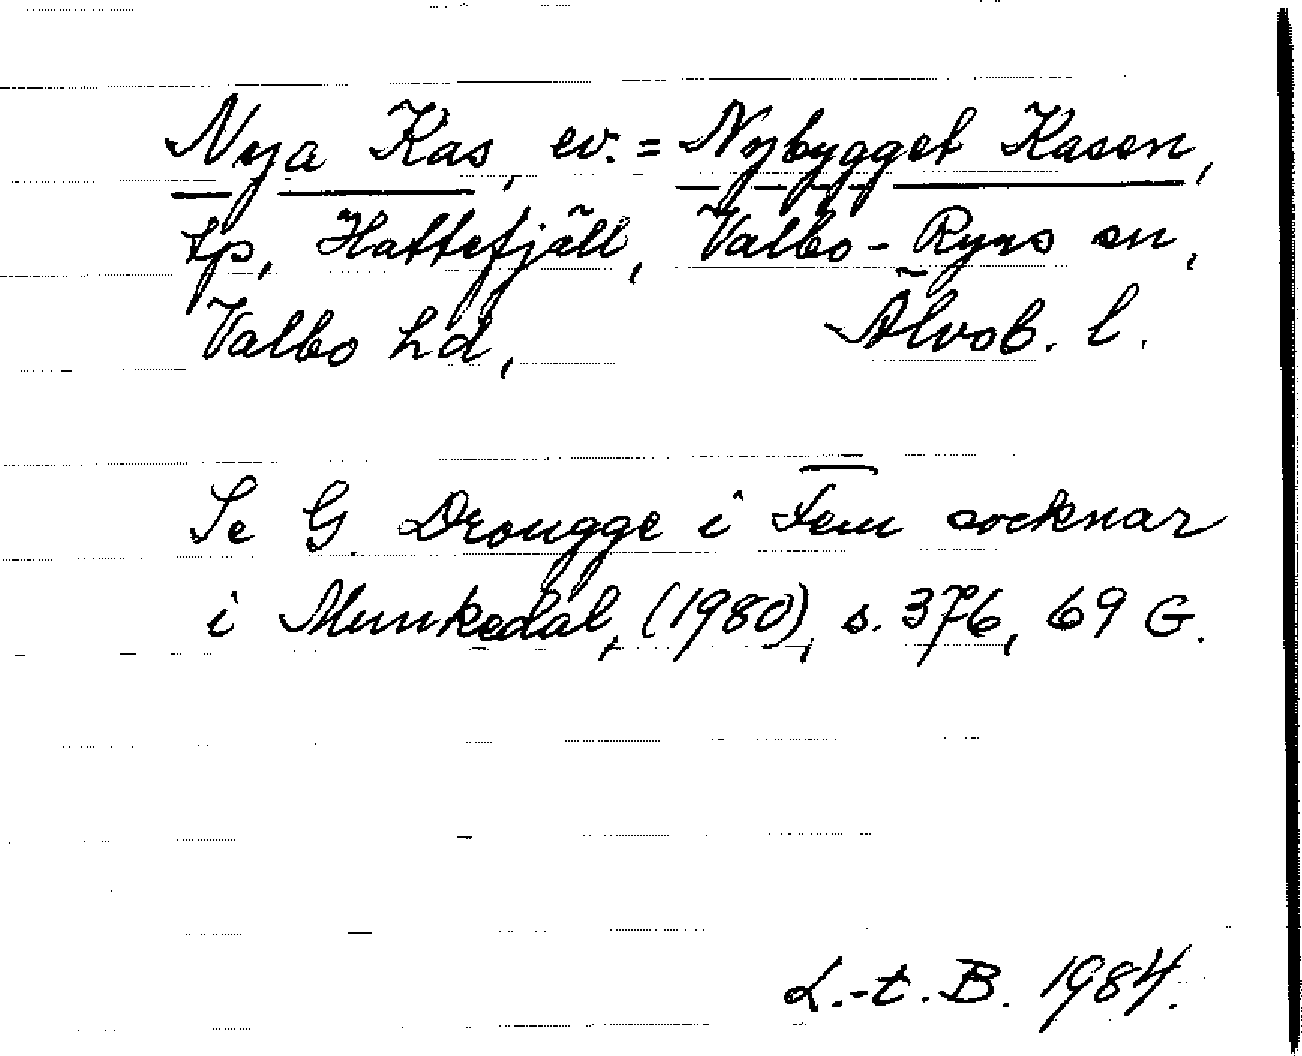 Nya Kas, ev. = Nybygget Kasen,
tp, Hattefjäll, Valbo-Ryrs sn,
Valbo hd, Älvsb. l.
Se G. Drougge i Fem socknar
i Munkedal, (1980), s. 376, 69 G.
L.-t. B. 1984.